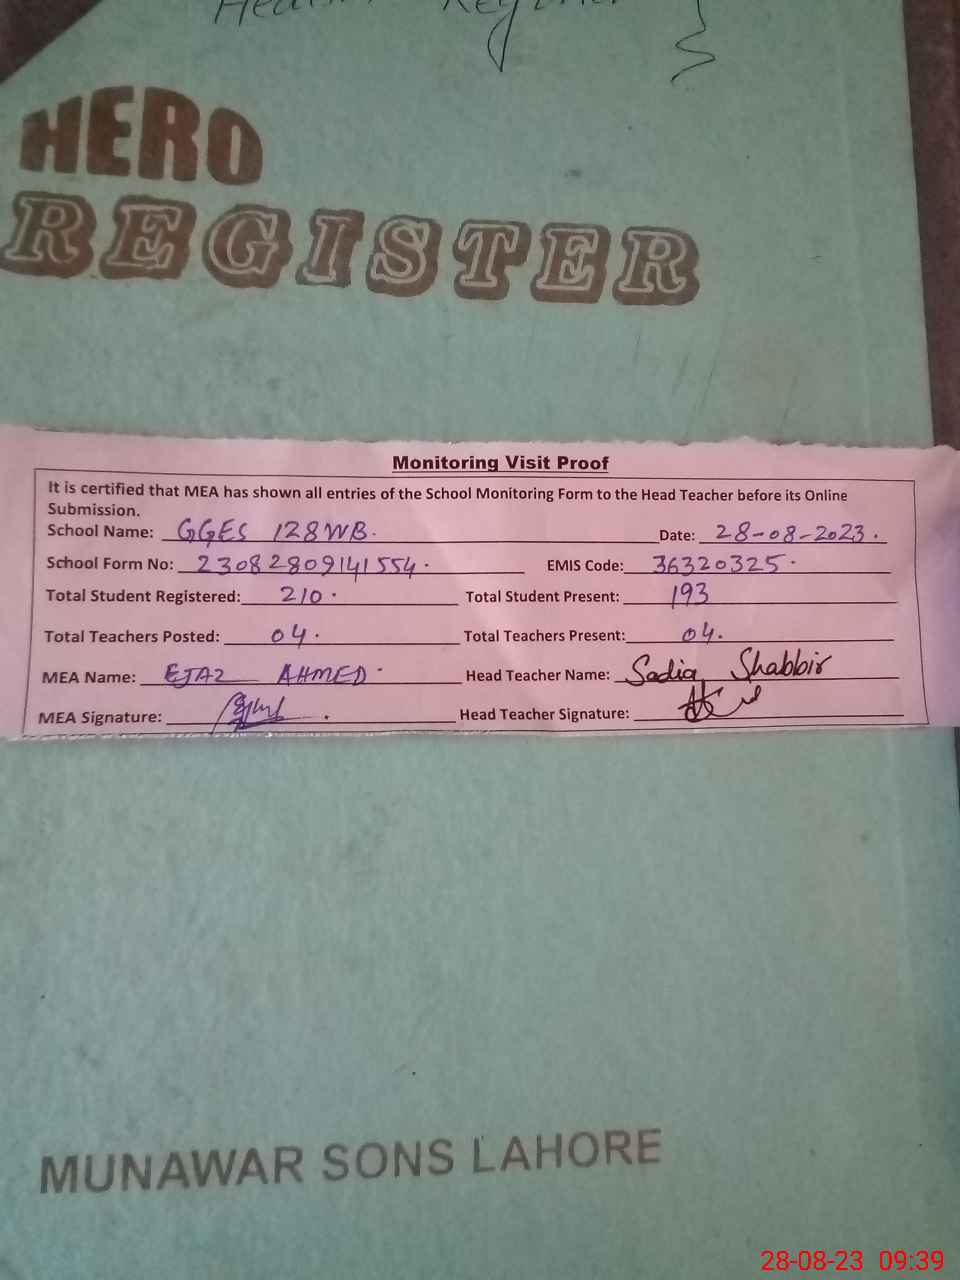 Health Register
HERO
REGISTER
Monitoring Visit Proof
It is certified that MEA has shown all entries of the School Monitoring Form to the Head Teacher before its Online
Submission.
School Name: GGES 128WB. Date: 28-08-2023.
School Form No: 23082809141554. EMIS Code: 36320325.
Total Student Registered: 210. Total Student Present: 193
Total Teachers Posted: 04. Total Teachers Present: 04.
MEA Name: EJAZ AHMED. Head Teacher Name: Sadia Shabbir
MEA Signature: Head Teacher Signature:
MUNAWAR SONS LAHORE
28-08-23 09:39